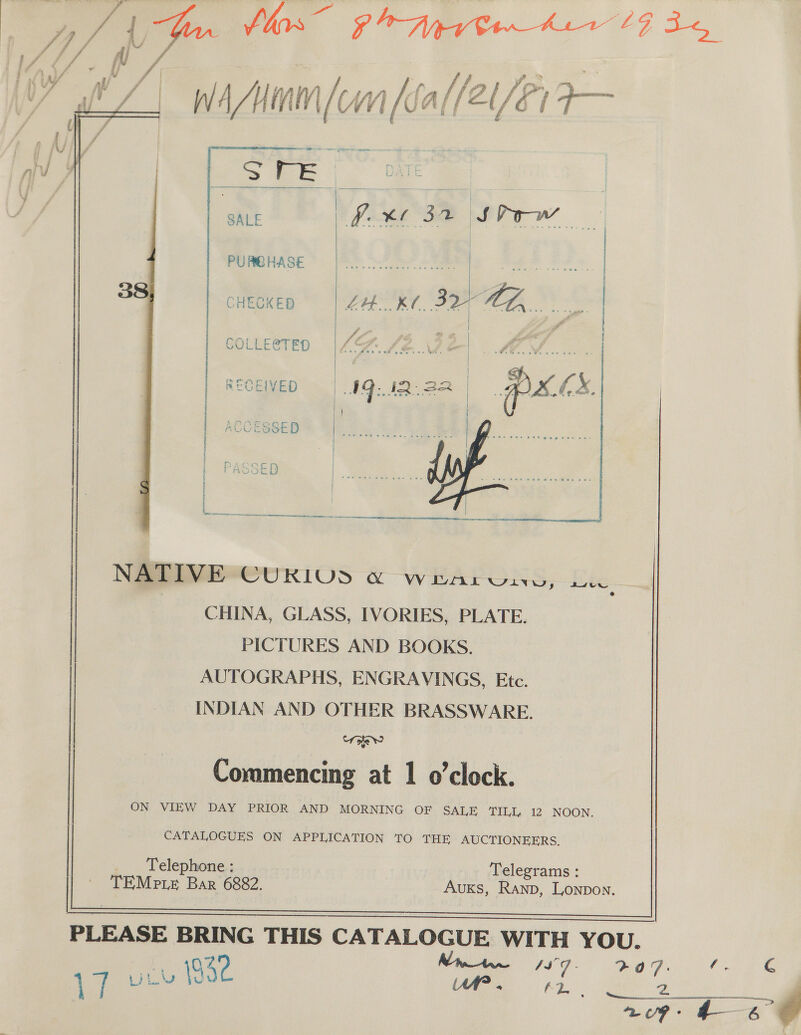 Mr Stow 8th November 1932
Stow
Original
WA/HMM/CM/Sal/21/817
STE DATE
SALE 8. XI 32 STOW
PURCHASE
38,
CHECKED 14. XI. 32
COLLECTED 19. 12. 32
RECEIVED 19. 12. 32
ACCESSED
PASSED
S
NATIVE CURIOS & WEAPONS, Etc.
CHINA, GLASS, IVORIES, PLATE.
PICTURES AND BOOKS.
AUTOGRAPHS, ENGRAVINGS, Etc.
INDIAN AND OTHER BRASSWARE.
Commencing at 1 o'clock.
ON VIEW DAY PRIOR AND MORNING OF SALE TILL 12 NOON.
CATALOGUES ON APPLICATION TO THE AUCTIONEERS.
Telephone :
TEMPLE BAR 6882.
Telegrams :
AUKS, RAND, LONDON.
PLEASE BRING THIS CATALOGUE WITH YOU.
17 DEC 1932
159. 207. 1. 6
UP. 12. 2
209. 1 6